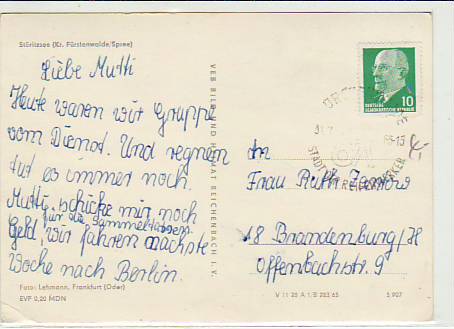 Störitzsee (Kr. Fürstenwalde/Spree)
Liebe Mutti
Heute waren wir Gruppe
vom Dienst. Und regnen
tut es immer noch.
Mutti, schicke mir noch
für die Sammeltassen
Geld, wir fahren nächste
Woche nach Berlin.
Foto: Lehmann, Frankfurt (Oder)
EVP 0,20 MDN
VEB BILD UND HEIMAT REICHENBACH I. V.
DEUTSCHE
DEMOKRATISCHE REPUBLIK
10
An
Frau Ruth
18 Brandenburg/H
Offenbachstr. 9
V 11 28 A 1/B 283 65
5 907